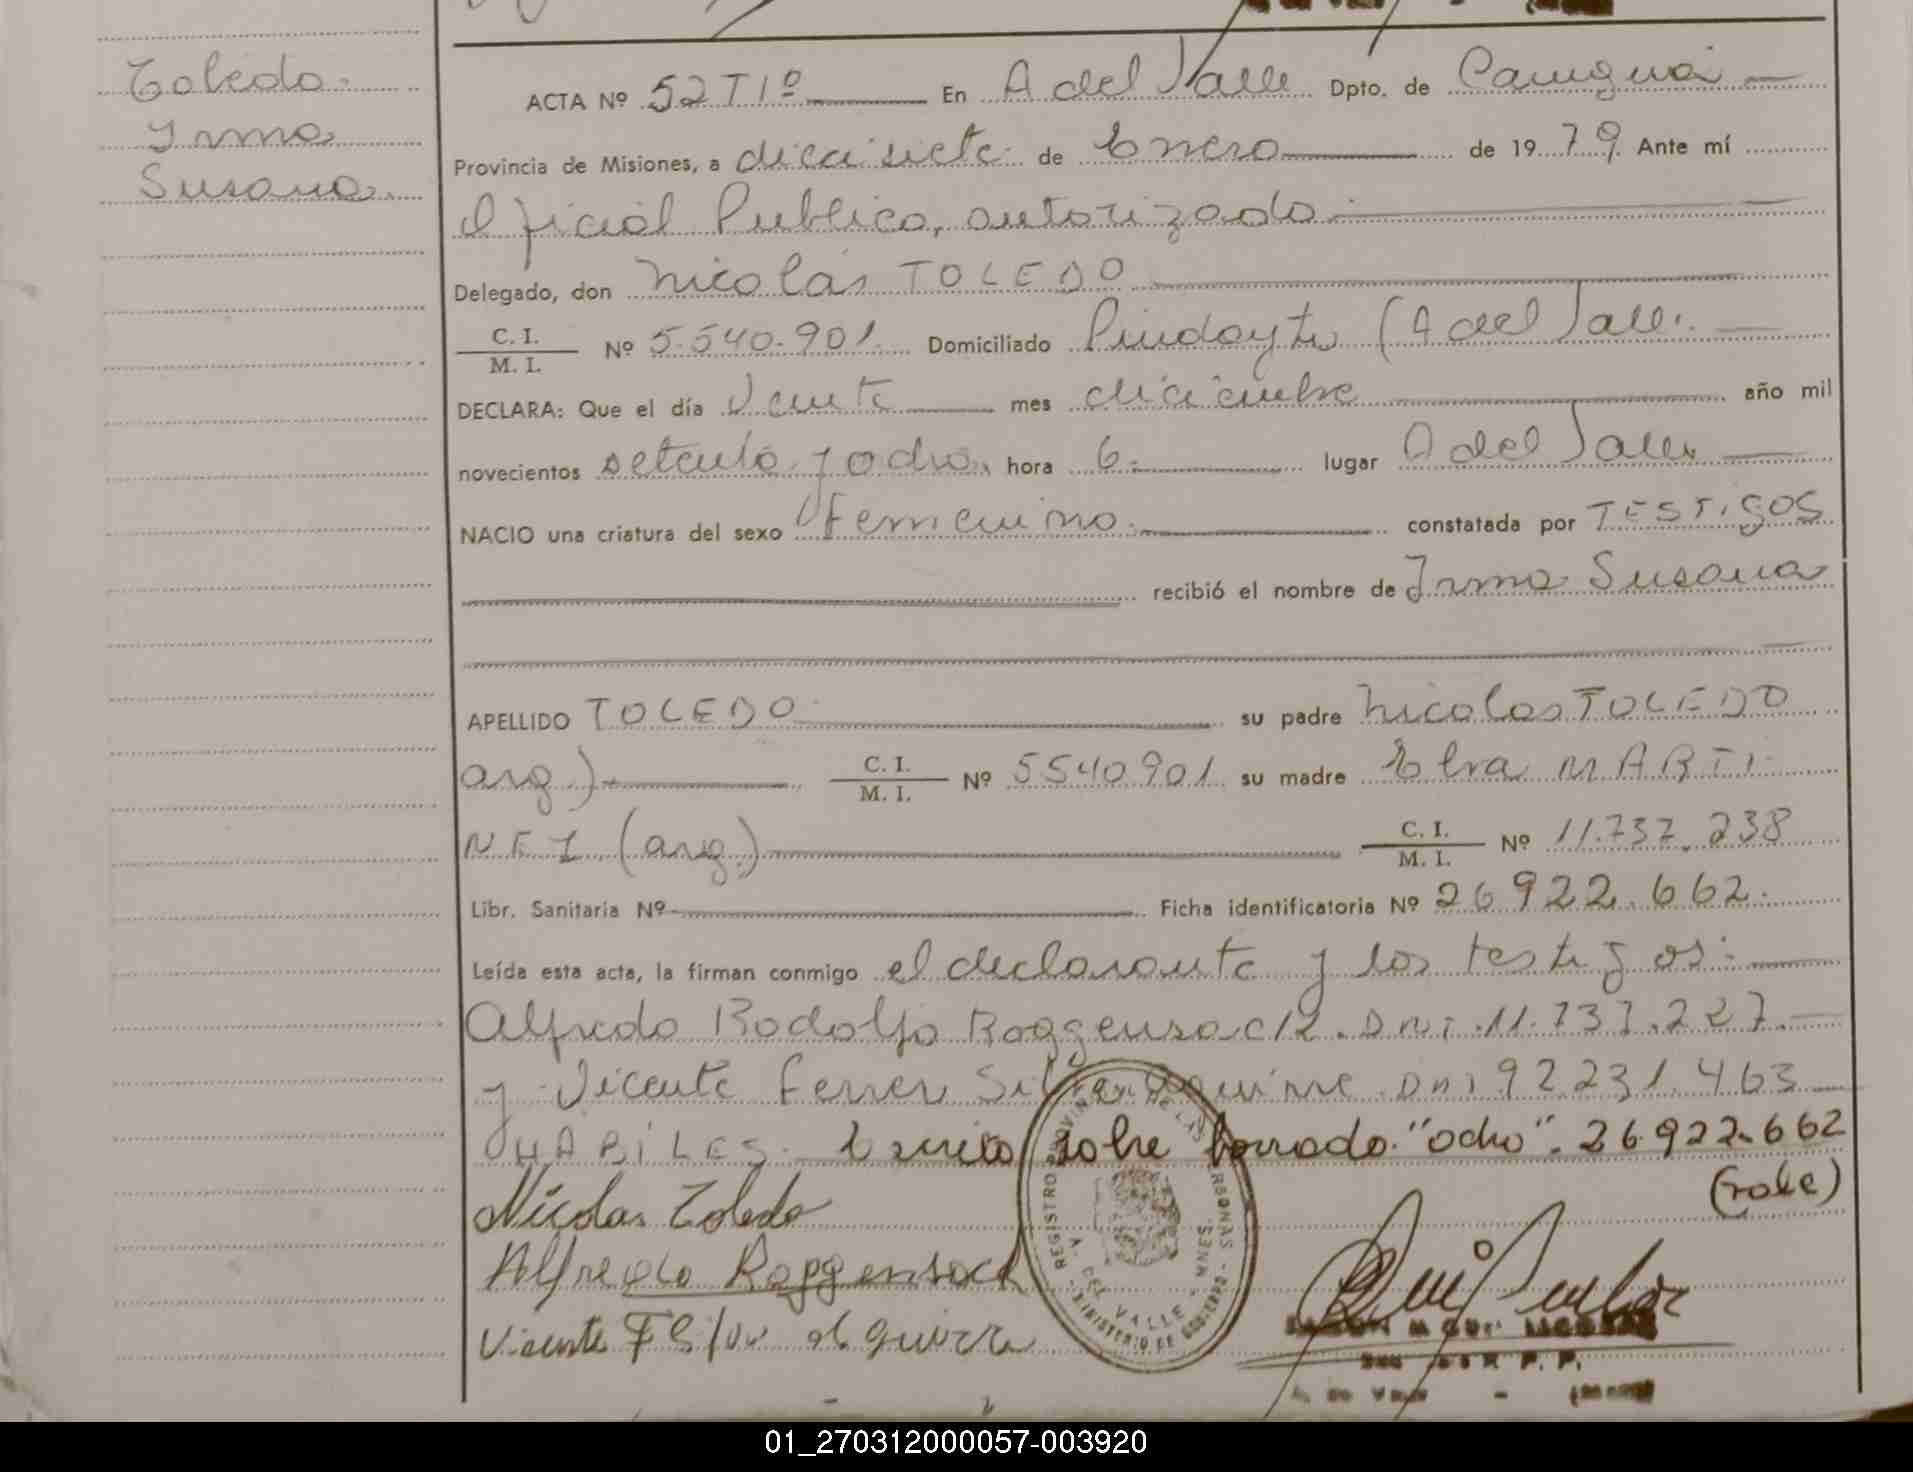 Toledo.
Irma
Susana.
ACTA Nº 52 T 1º En A del Valle Dpto. de Cainguá
Provincia de Misiones, a diecisiete de Enero de 1979 Ante mí
Oficial Publico, autorizado.
Delegado, don Nicolás TOLEDO
C. I. / M. I. Nº 5.540.901. Domiciliado Pindayti (A del Valle.
DECLARA: Que el día Veinte mes diciembre año mil
novecientos setenta y ocho, hora 6. lugar A del Valle
NACIO una criatura del sexo femenino. constatada por TESTIGOS
recibió el nombre de Irma Susana
APELLIDO TOLEDO su padre Nicolas TOLEDO
arg.) C. I. / M. I. Nº 5540901 su madre Elva MARTI
NEZ (arg.) C. I. / M. I. Nº 11.737.238
Libr. Sanitaria Nº Ficha identificatoria Nº 26922.662.
Leída esta acta, la firman conmigo el declarante y los testigos:
Alfredo Rodolfo Roggensack. Dni. 11.737.227.
y Vicente Ferrer Silva Aguirre. Dni 92.231.463
HABILES. Escrito sobre borrado. "ocho". 26.922.662
(vale)
Nicolas Toledo
Alfredo Roggensack
Vicente F Silva Aguirre
REGISTRO PROVINCIAL DE LAS PERSONAS
A. DEL VALLE - MNES.
MINISTERIO DE GOBIERNO
01_270312000057-003920